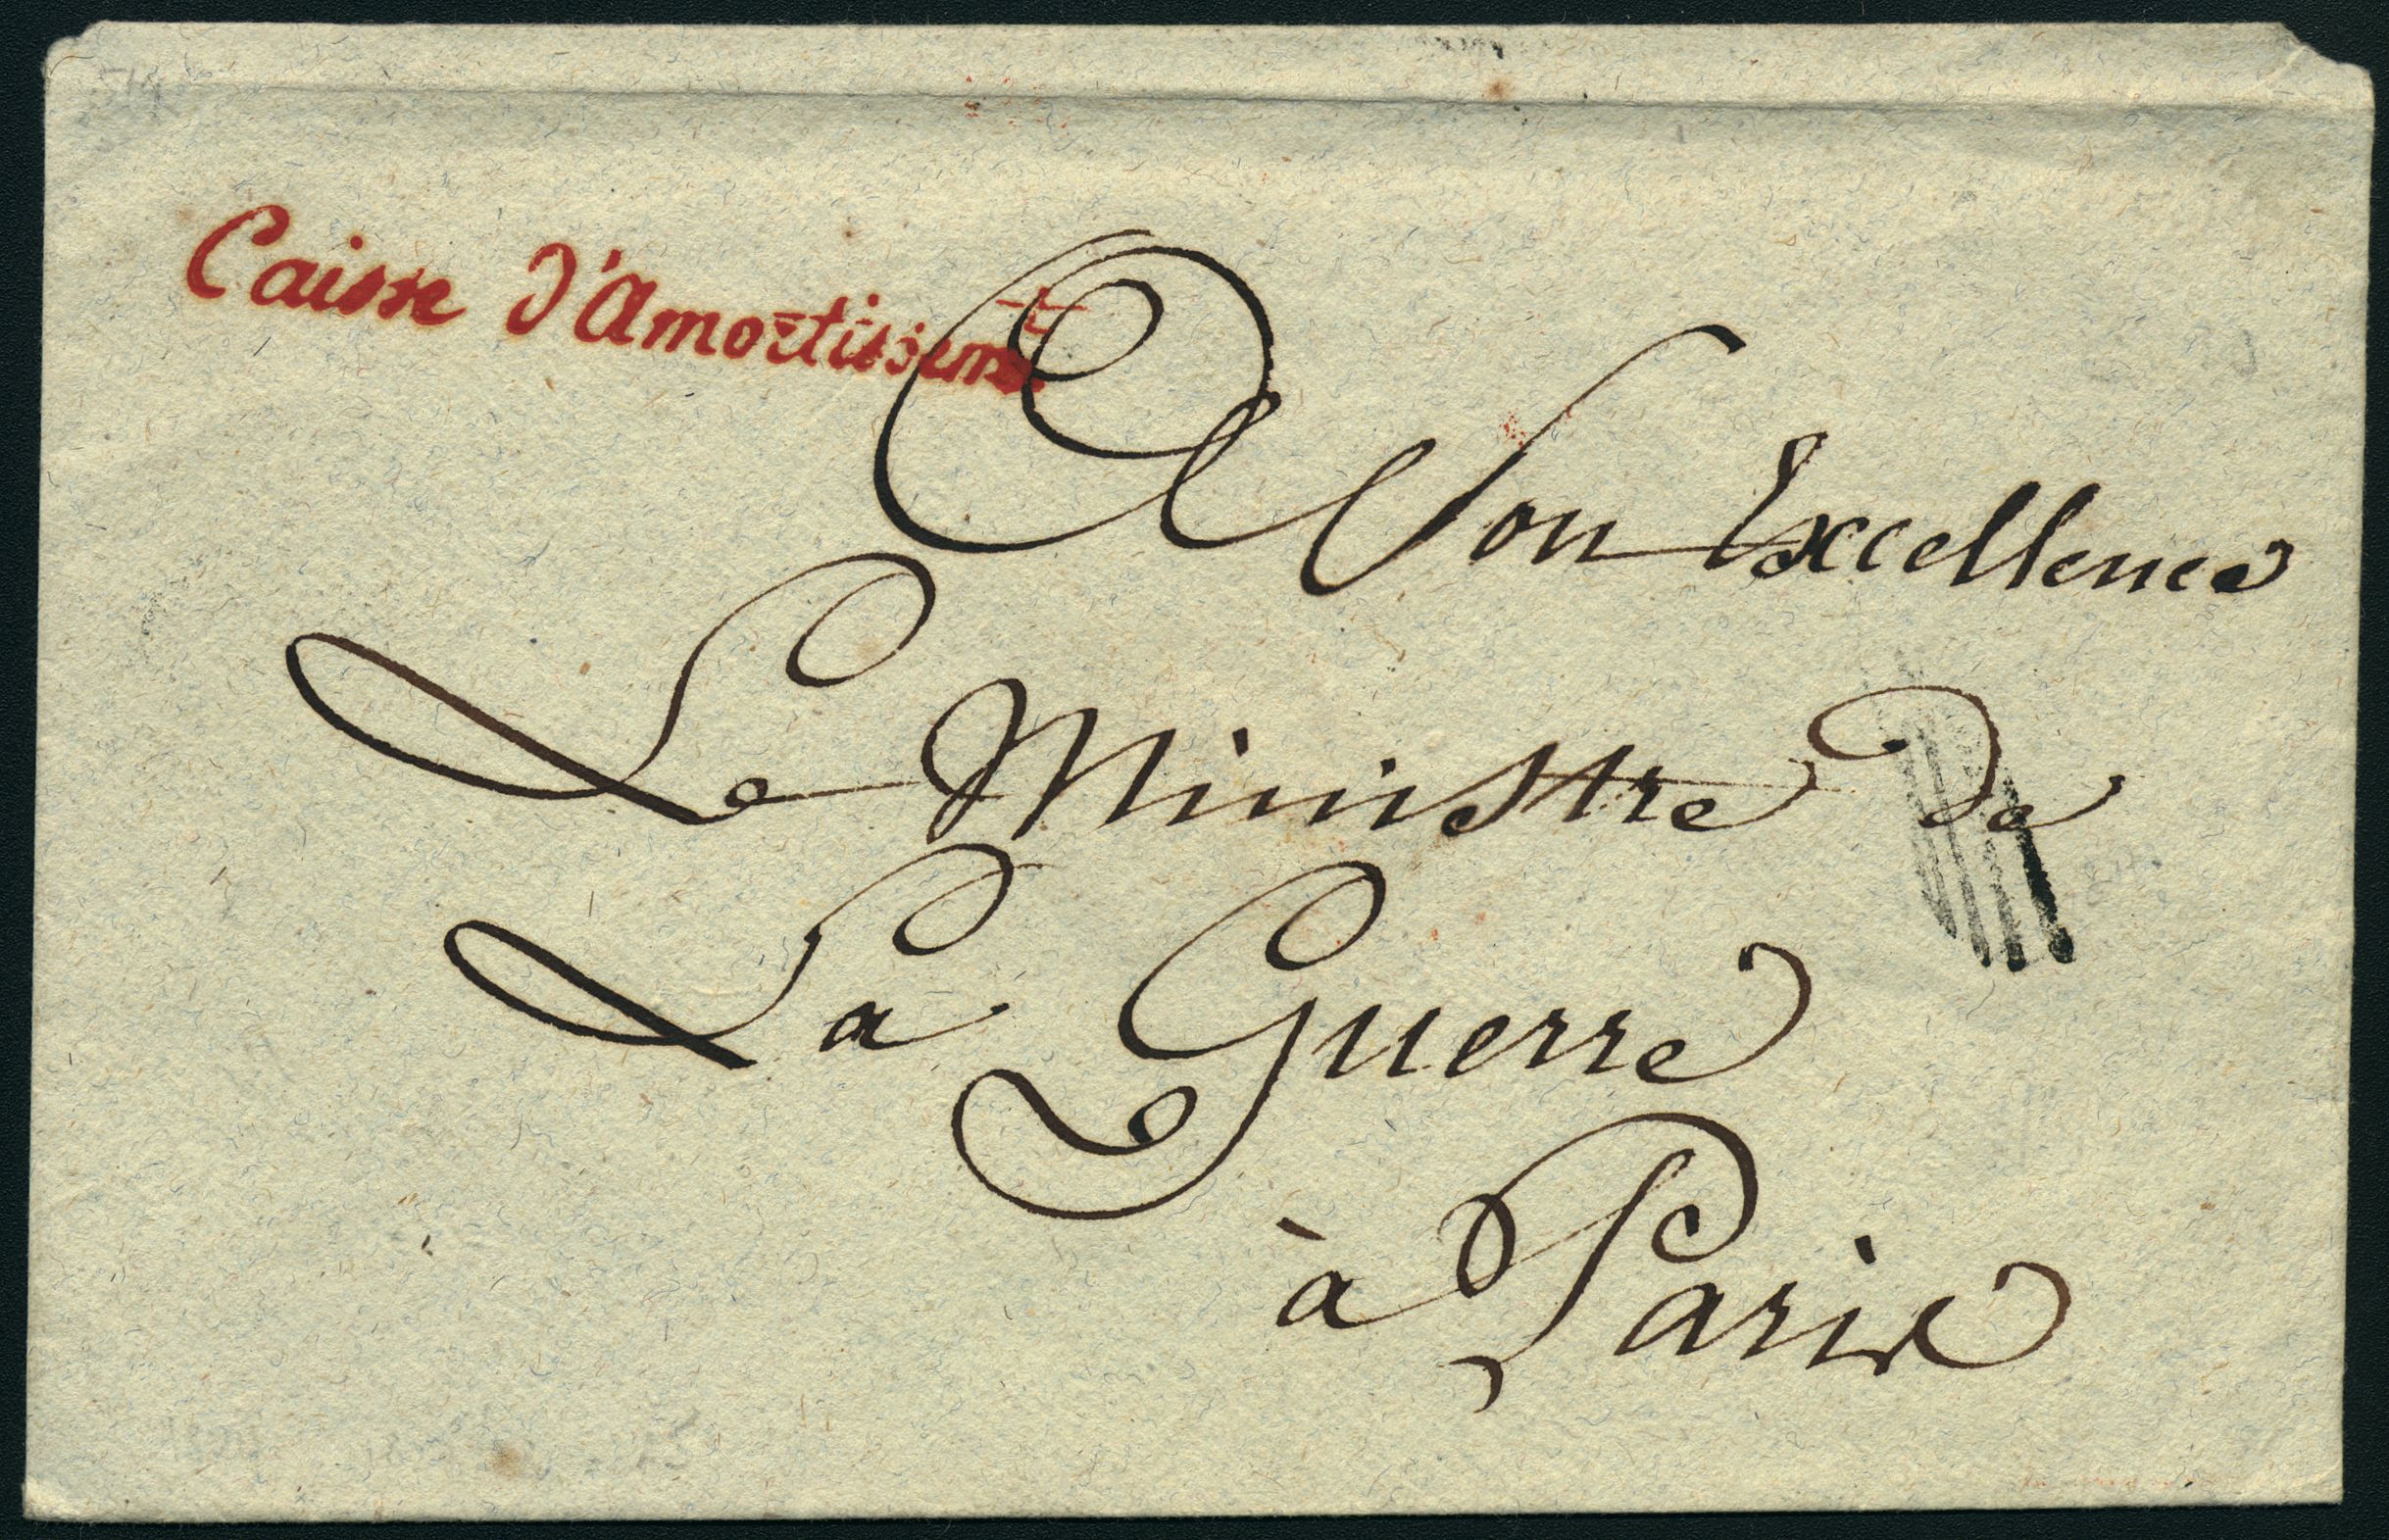 Caisse d'Amortissemt.
A Son Excellence
Le Ministre De
La Guerre
à Paris